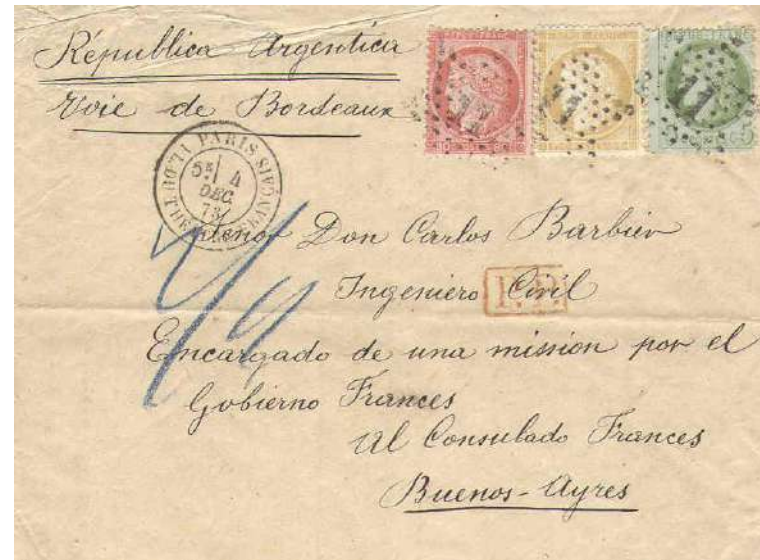 Républica Argentica
Voie de Bordeaux
PARIS
5E 4
DEC.
73
Señor Don Carlos Barbier
Ingeniero Civil
P.D.
Encargado de una mission por el
Gobierno Frances
Al Consulado Frances
Buenos-Ayres
11
11
11